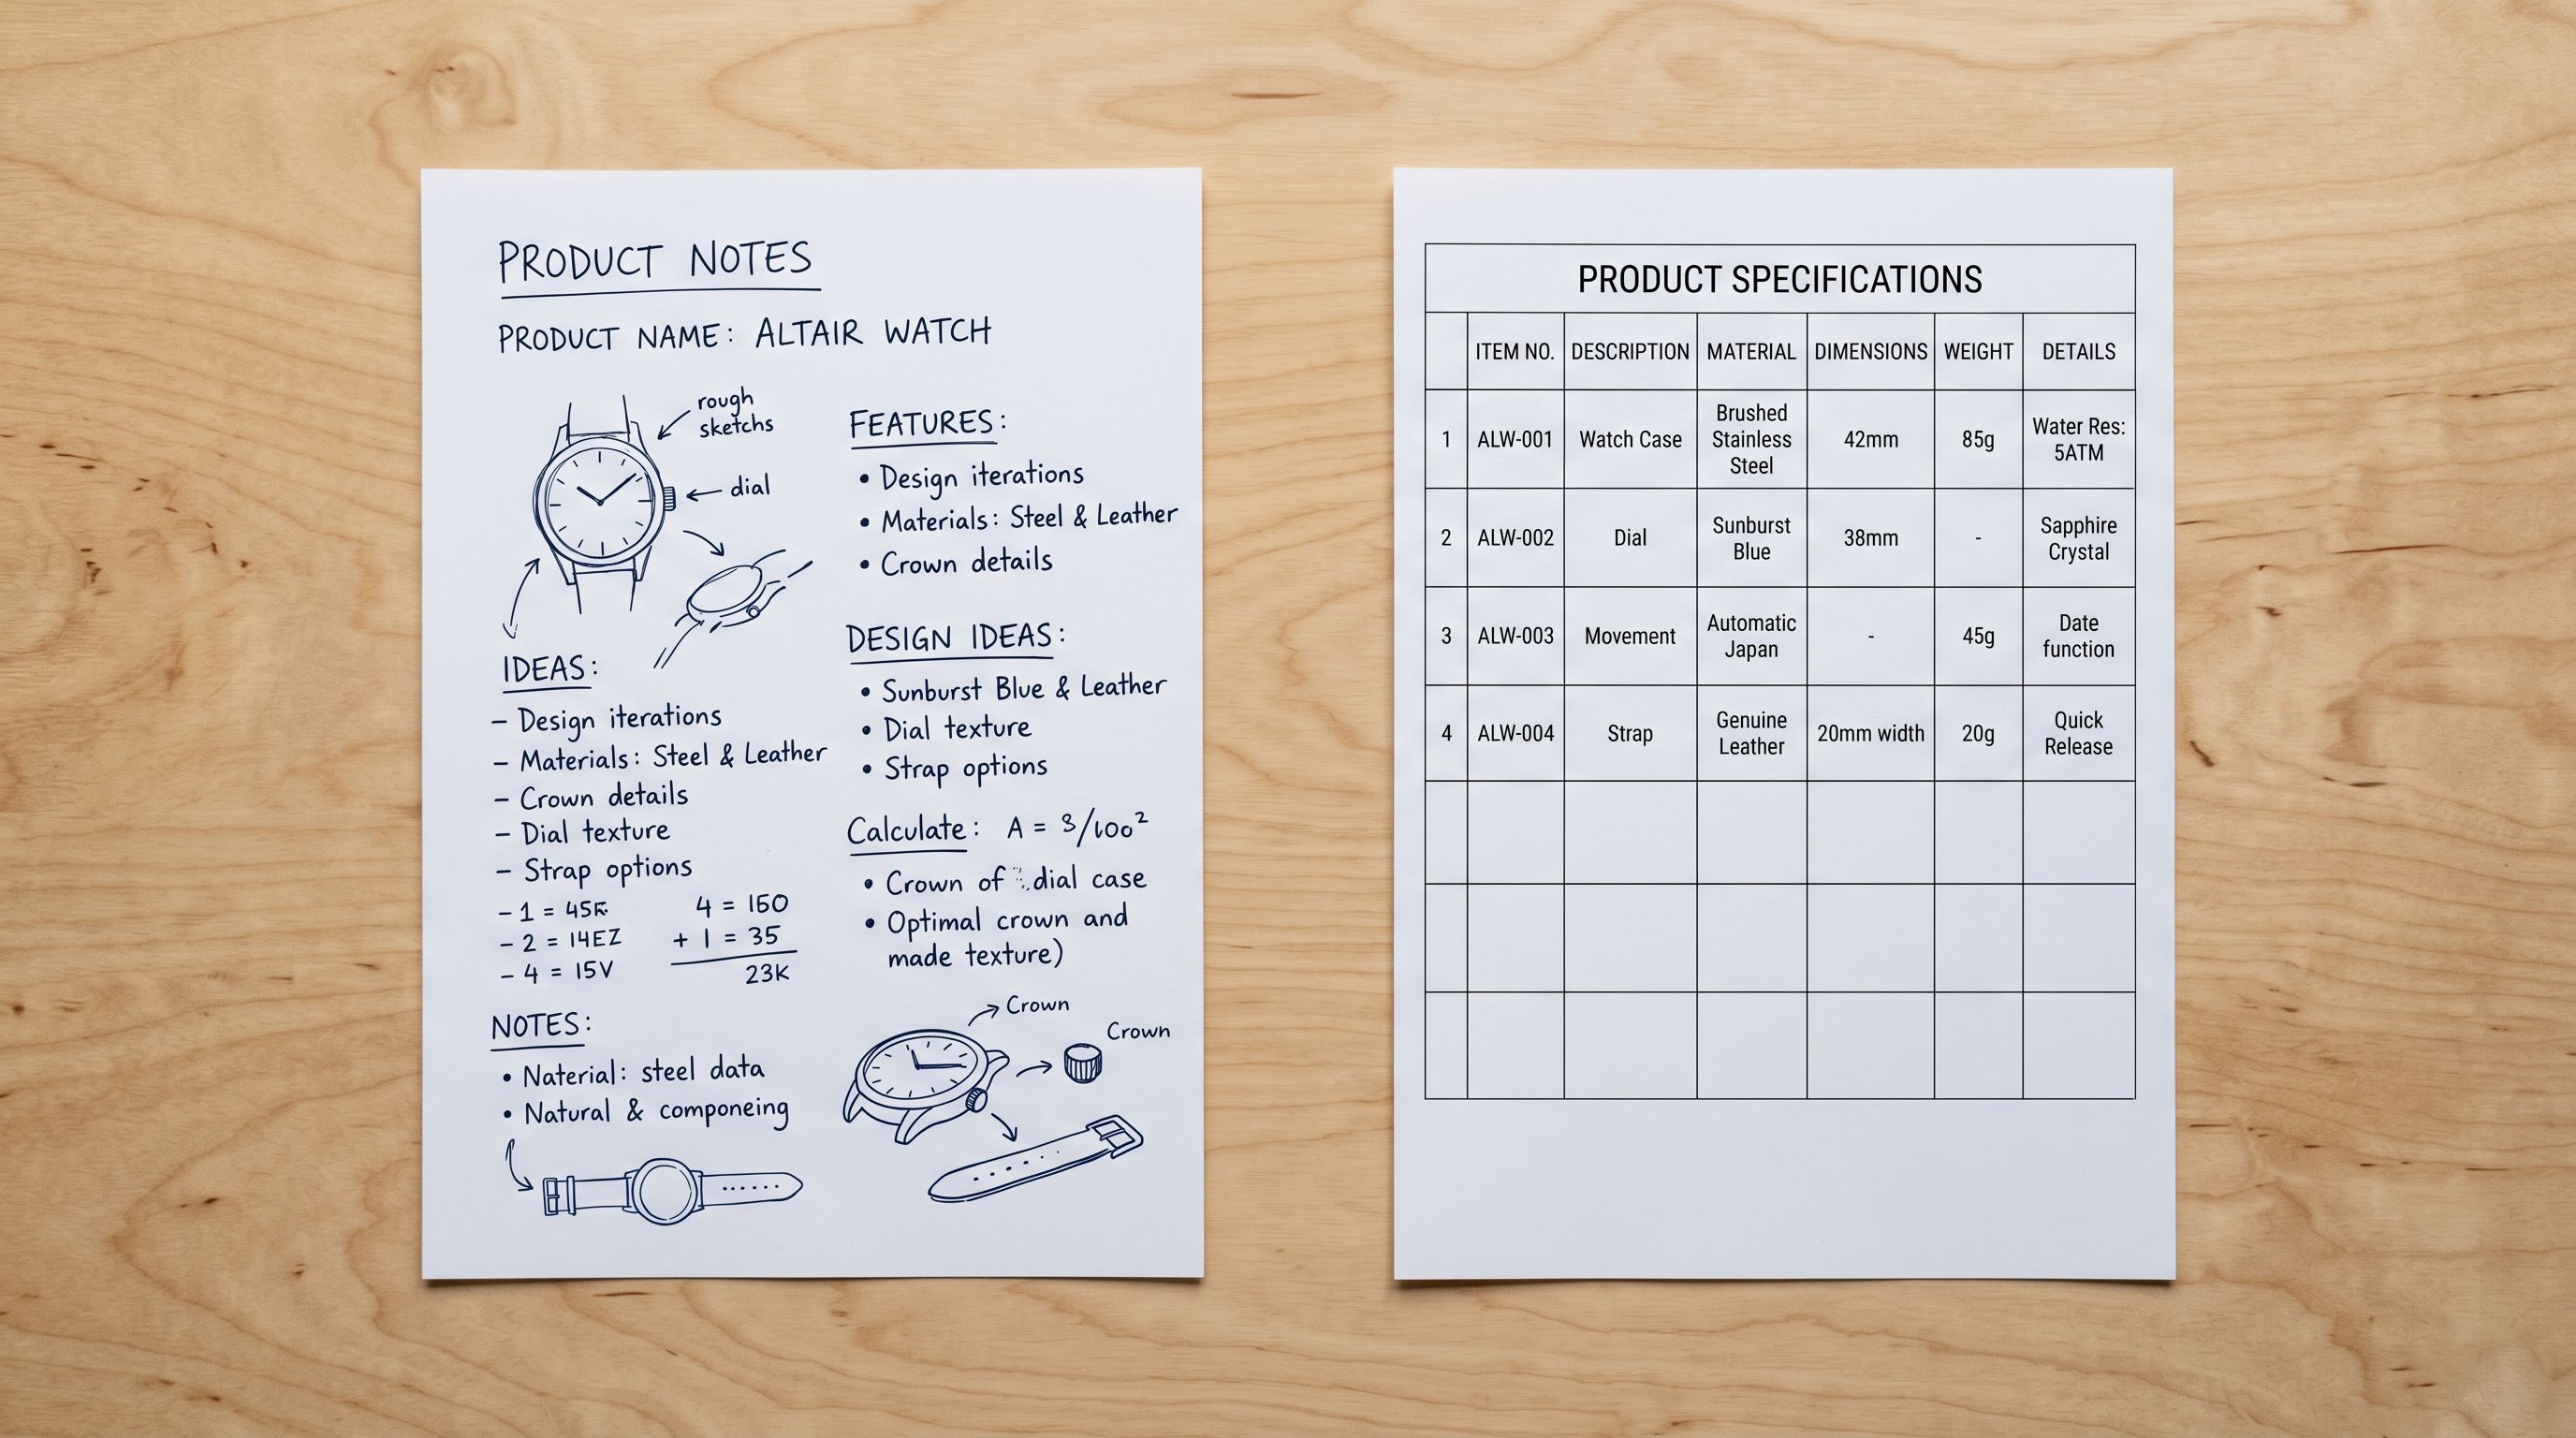 PRODUCT NOTES
PRODUCT NAME: ALTAIR WATCH
rough
sketchs
dial
IDEAS:
– Design iterations
– Materials: Steel & Leather
– Crown details
– Dial texture
– Strap options
– 1 = 45
– 2 = 14EZ
– 4 = 15V
4 = 150
+ 1 = 35
23K
NOTES:
• Naterial: steel data
• Natural & componeing
FEATURES:
• Design iterations
• Materials: Steel & Leather
• Crown details
DESIGN IDEAS:
• Sunburst Blue & Leather
• Dial texture
• Strap options
Calculate: A =
• Crown of dial case
• Optimal crown and
made texture)
Crown
Crown
PRODUCT SPECIFICATIONS
ITEM NO. DESCRIPTION MATERIAL DIMENSIONS WEIGHT DETAILS
1 ALW-001 Watch Case Brushed Stainless Steel 42mm 85g Water Res: 5ATM
2 ALW-002 Dial Sunburst Blue 38mm - Sapphire Crystal
3 ALW-003 Movement Automatic Japan - 45g Date function
4 ALW-004 Strap Genuine Leather 20mm width 20g Quick Release